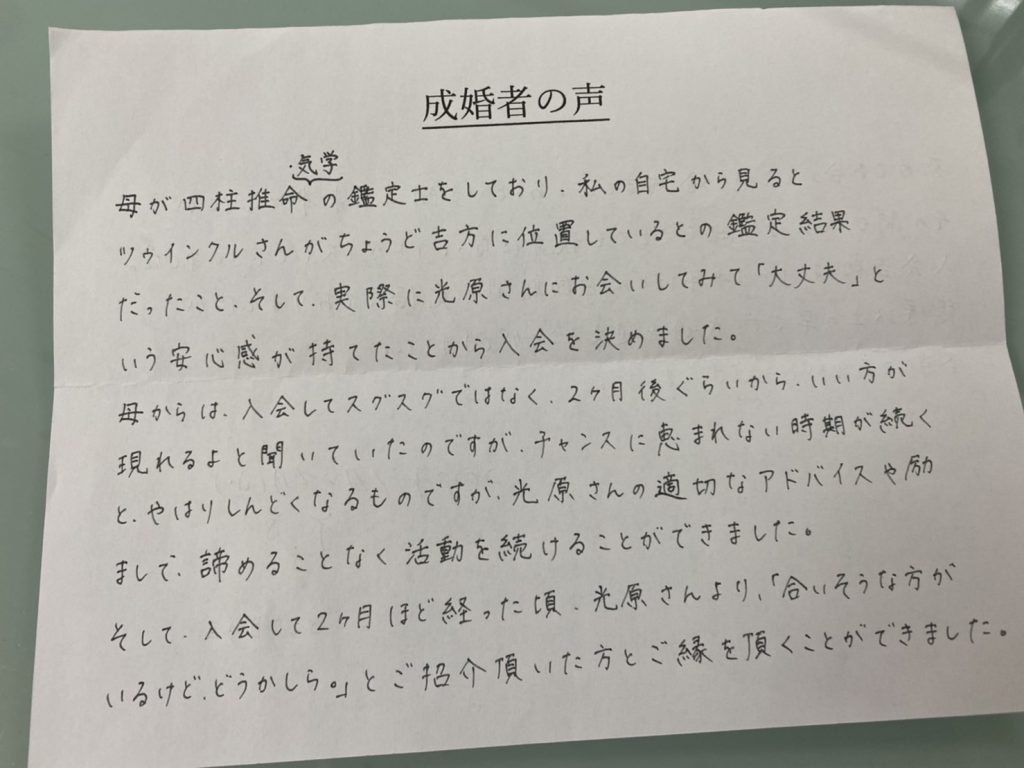 成婚者の声
・気学
母が四柱推命の鑑定士をしており、私の自宅から見ると
ツゥインクルさんがちょうど吉方に位置しているとの鑑定結果
だったこと、そして、実際に光原さんにお会いしてみて「大丈夫」と
いう安心感が持てたことから入会を決めました。
母からは、入会してスグスグではなく、2ヶ月後ぐらいから、いい方が
現れるよと聞いていたのですが、チャンスに恵まれない時期が続く
と、やはりしんどくなるものですが、光原さんの適切なアドバイスや励
まして、諦めることなく活動を続けることができました。
そして、入会して2ヶ月ほど経った頃、光原さんより、「合いそうな方が
いるけど、どうかしら。」とご招介頂いた方とご縁を頂くことができました。